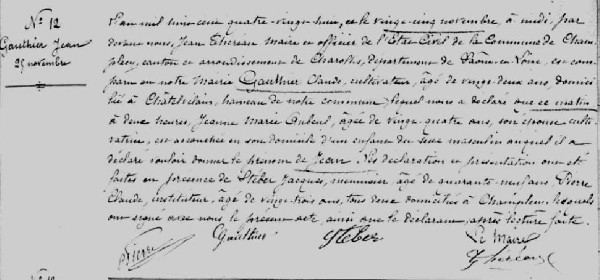 N° 12
Gauthier Jean
25 novembre
L'an mil huit cent quatre-vingt-huit, et le vingt-cinq novembre, à midi, par
devant nous, Jean Thereau Maire et officier de l'Etat Civil de la Commune de Cham-
plecy, canton et arrondissement de Charolles, département de Saône et Loire, est com-
paru en notre Mairie Gauthier Claude, cultivateur, âgé de vingt-deux ans, domici
lié à Châtelvilain, hameau de notre commune, lequel nous a déclaré que ce matin
à deux heures, Jeanne Marie, âgée de vingt-quatre ans, son épouse culti-
vatrice, est accouchée en son domicile d'un enfant du sexe masculin auquel il a
déclaré vouloir donner le prénom de Jean. Ces déclaration et présentation ont été
faites en présence de Steber Jacques, meunier âgé de quarante-neuf ans, Pierre
Claude, instituteur, âgé de vingt-trois ans, tous deux domiciliés à Champlecy, lesquels
ont signé avec nous le présent acte ainsi que le déclarant, après lecture faite.
Pierre Gauthier Steber Le Maire
Thereau
N° 13